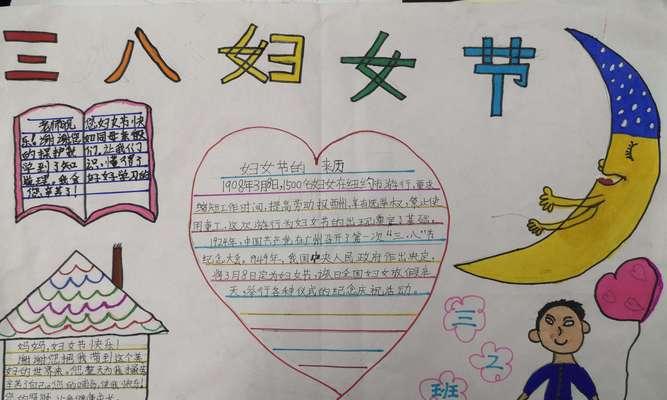 三八妇女节
老师祝您妇女节快
乐！谢谢您如同母亲般
的保护我们，让我们
学到了知识，懂得了
道理，我会好好学习的
您辛苦了！
妇女节的来历
1908年3月8日，1500名妇女在纽约市游行，要求
缩短工作时间，提高劳动报酬，享有选举权，禁止使
用童工，这次游行为妇女节的出现奠定了基础。
1924年，中国共产党在广州召开了第一次“三·八”节
纪念大会，1949年，我国中央人民政府作出决定，
将3月8日定为妇女节，该日全国妇女放假半
天，举行各种仪式的纪念庆祝活动。
妈妈，妇女节快乐！
谢谢您把我带到这个美
好的世界来，您整天为我操劳
三
2
班